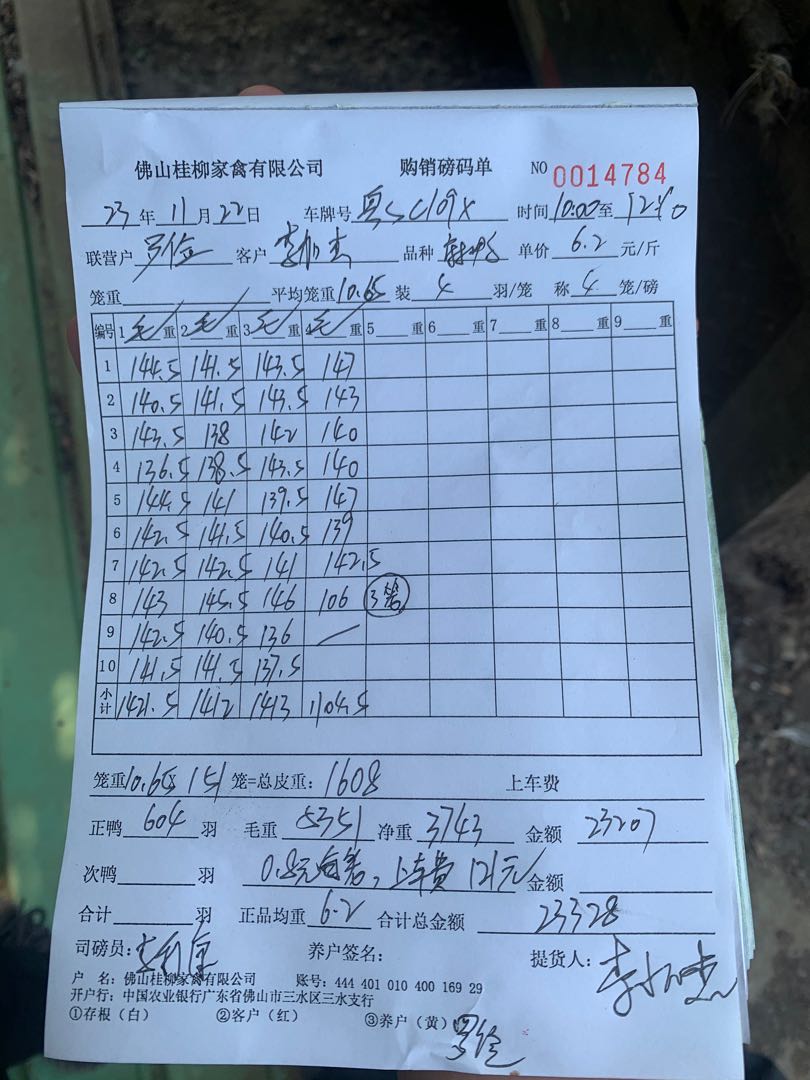 佛山桂柳家禽有限公司 购销磅码单 NO 0014784
23年11月22日 车牌号 粤SC109X 时间10:00至12:40
联营户 罗俭 客户 品种 单价 6.2 元/斤
笼重 平均笼重10.65 装 4 羽/笼 称 4 笼/磅
编号 1毛重 2毛重 3毛重 4毛重 5重 6重 7重 8重 9重
1 144.5 141.5 143.5 147
2 140.5 141.5 143.5 143
3 143.5 138 142 140
4 136.5 138.5 143.5 140
5 144.5 141 139.5 147
6 142.5 141.5 140.5 139
7 142.5 142.5 141 142.5
8 143 145.5 146 106 3笼
9 142.5 140.5 136 /
10 141.5 141.5 137.5
小计 1421.5 1412 1413 1104.5
笼重10.65 151笼=总皮重:1608 上车费
正鸭 604 羽 毛重 5351 净重 3743 金额 23207
次鸭 羽 0.2元 上车费 121元 金额
合计 羽 正品均重 6.2 合计总金额 23328
司磅员: 养户签名: 提货人:
户 名:佛山桂柳家禽有限公司 账号:444 401 010 400 169 29
开户行:中国农业银行广东省佛山市三水区三水支行
①存根(白) ②客户(红) ③养户(黄)
罗俭